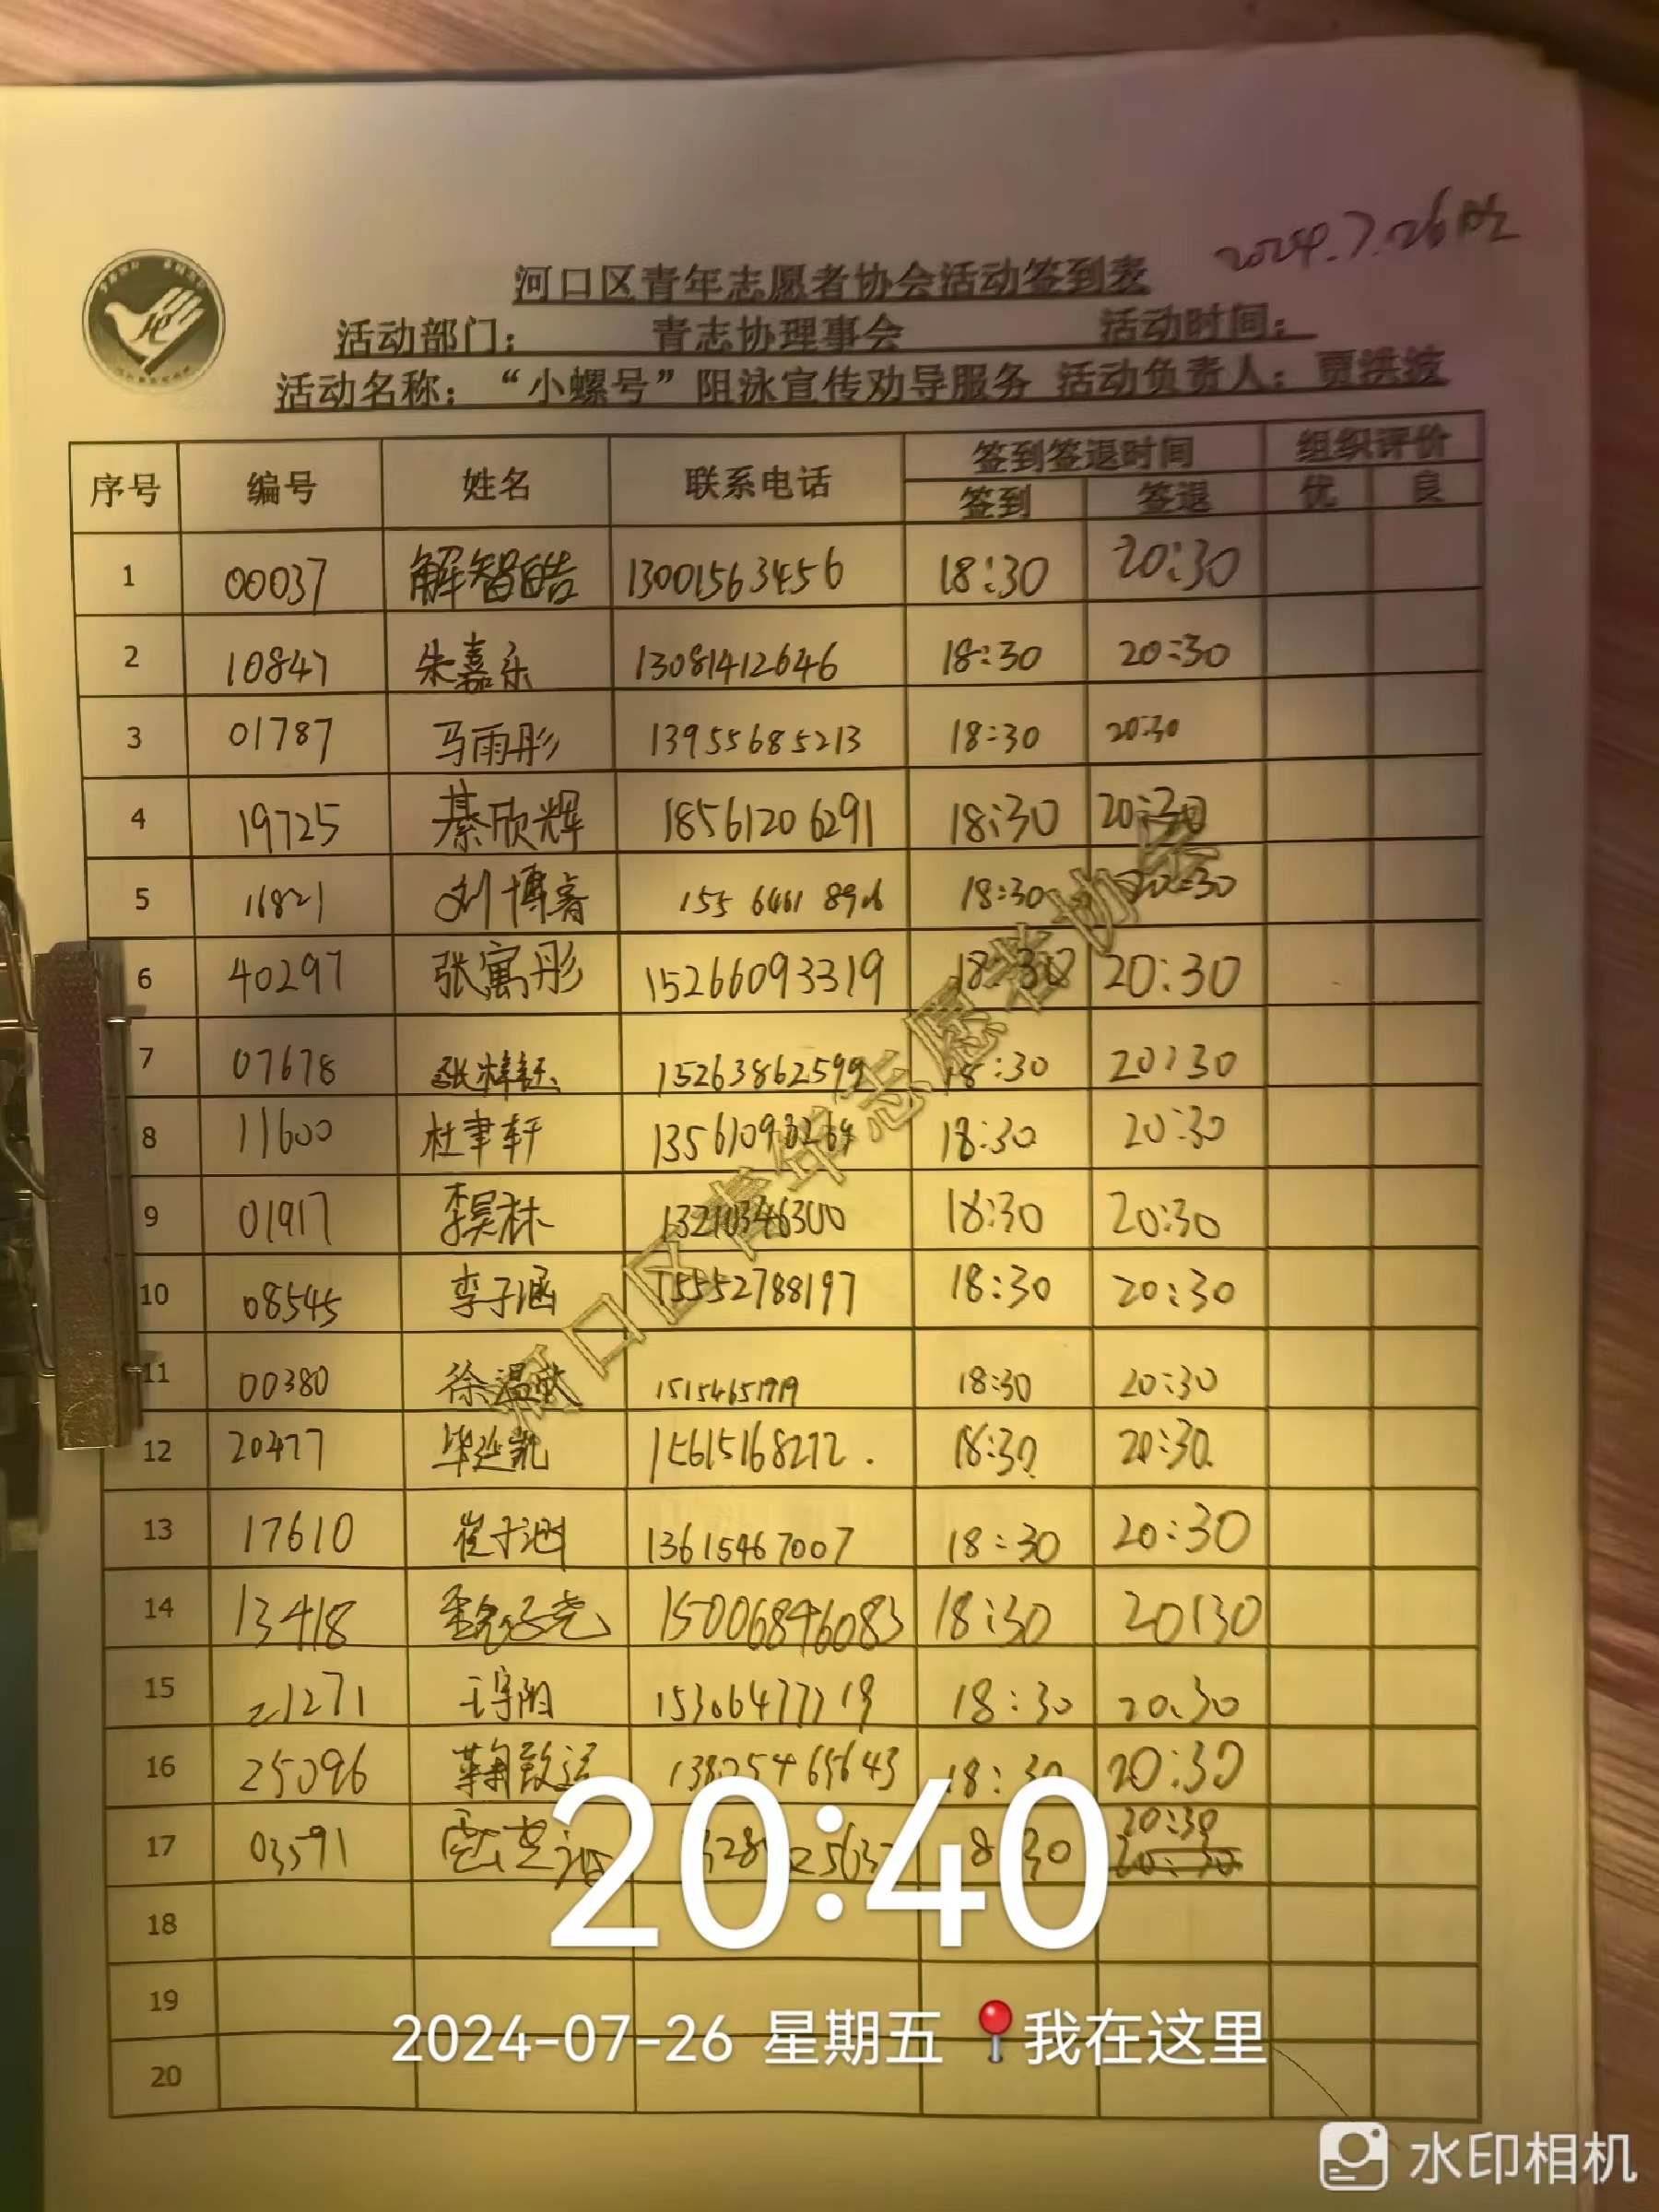 2024.7.26晚
河口区青年志愿者协会活动签到表
活动部门： 青志协理事会 活动时间：
活动名称：“小螺号”阻泳宣传劝导服务 活动负责人：贾洪波
序号 编号 姓名 联系电话 签到签退时间 组织评价
签到 签退 优 良
1 00037 解智皓 13001563456 18:30 20:30
2 10847 朱嘉乐 13081412646 18:30 20:30
3 01787 马雨彤 13955685213 18:30 20:30
4 19725 綦欣辉 18561206291 18:30 20:30
5 16821 刘博睿 155 6461 8906 18:30 20:30
6 40297 张寓彤 15266093319 18:30 20:30
7 07678 张梓钰 15263862599 18:30 20:30
8 11600 杜聿轩 13561093264 18:30 20:30
9 01917 李昊林 18:30 20:30
10 08545 李子涵 15552788197 18:30 20:30
11 00380 徐温 15154651919 18:30 20:30
12 20477 毕延凯 15615168272. 18:30 20:30
13 17610 崔子涵 13615467007 18:30 20:30
14 13418 魏子尧 15006846083 18:30 20:30
15 21271 王宇阳 18:30 20:30
16 25096 鞠致远 18:30 20:30
17 03591 18:30 20:30
20:30
18
19
20
河口区青年志愿者协会
20:40
2024-07-26 星期五 我在这里
水印相机